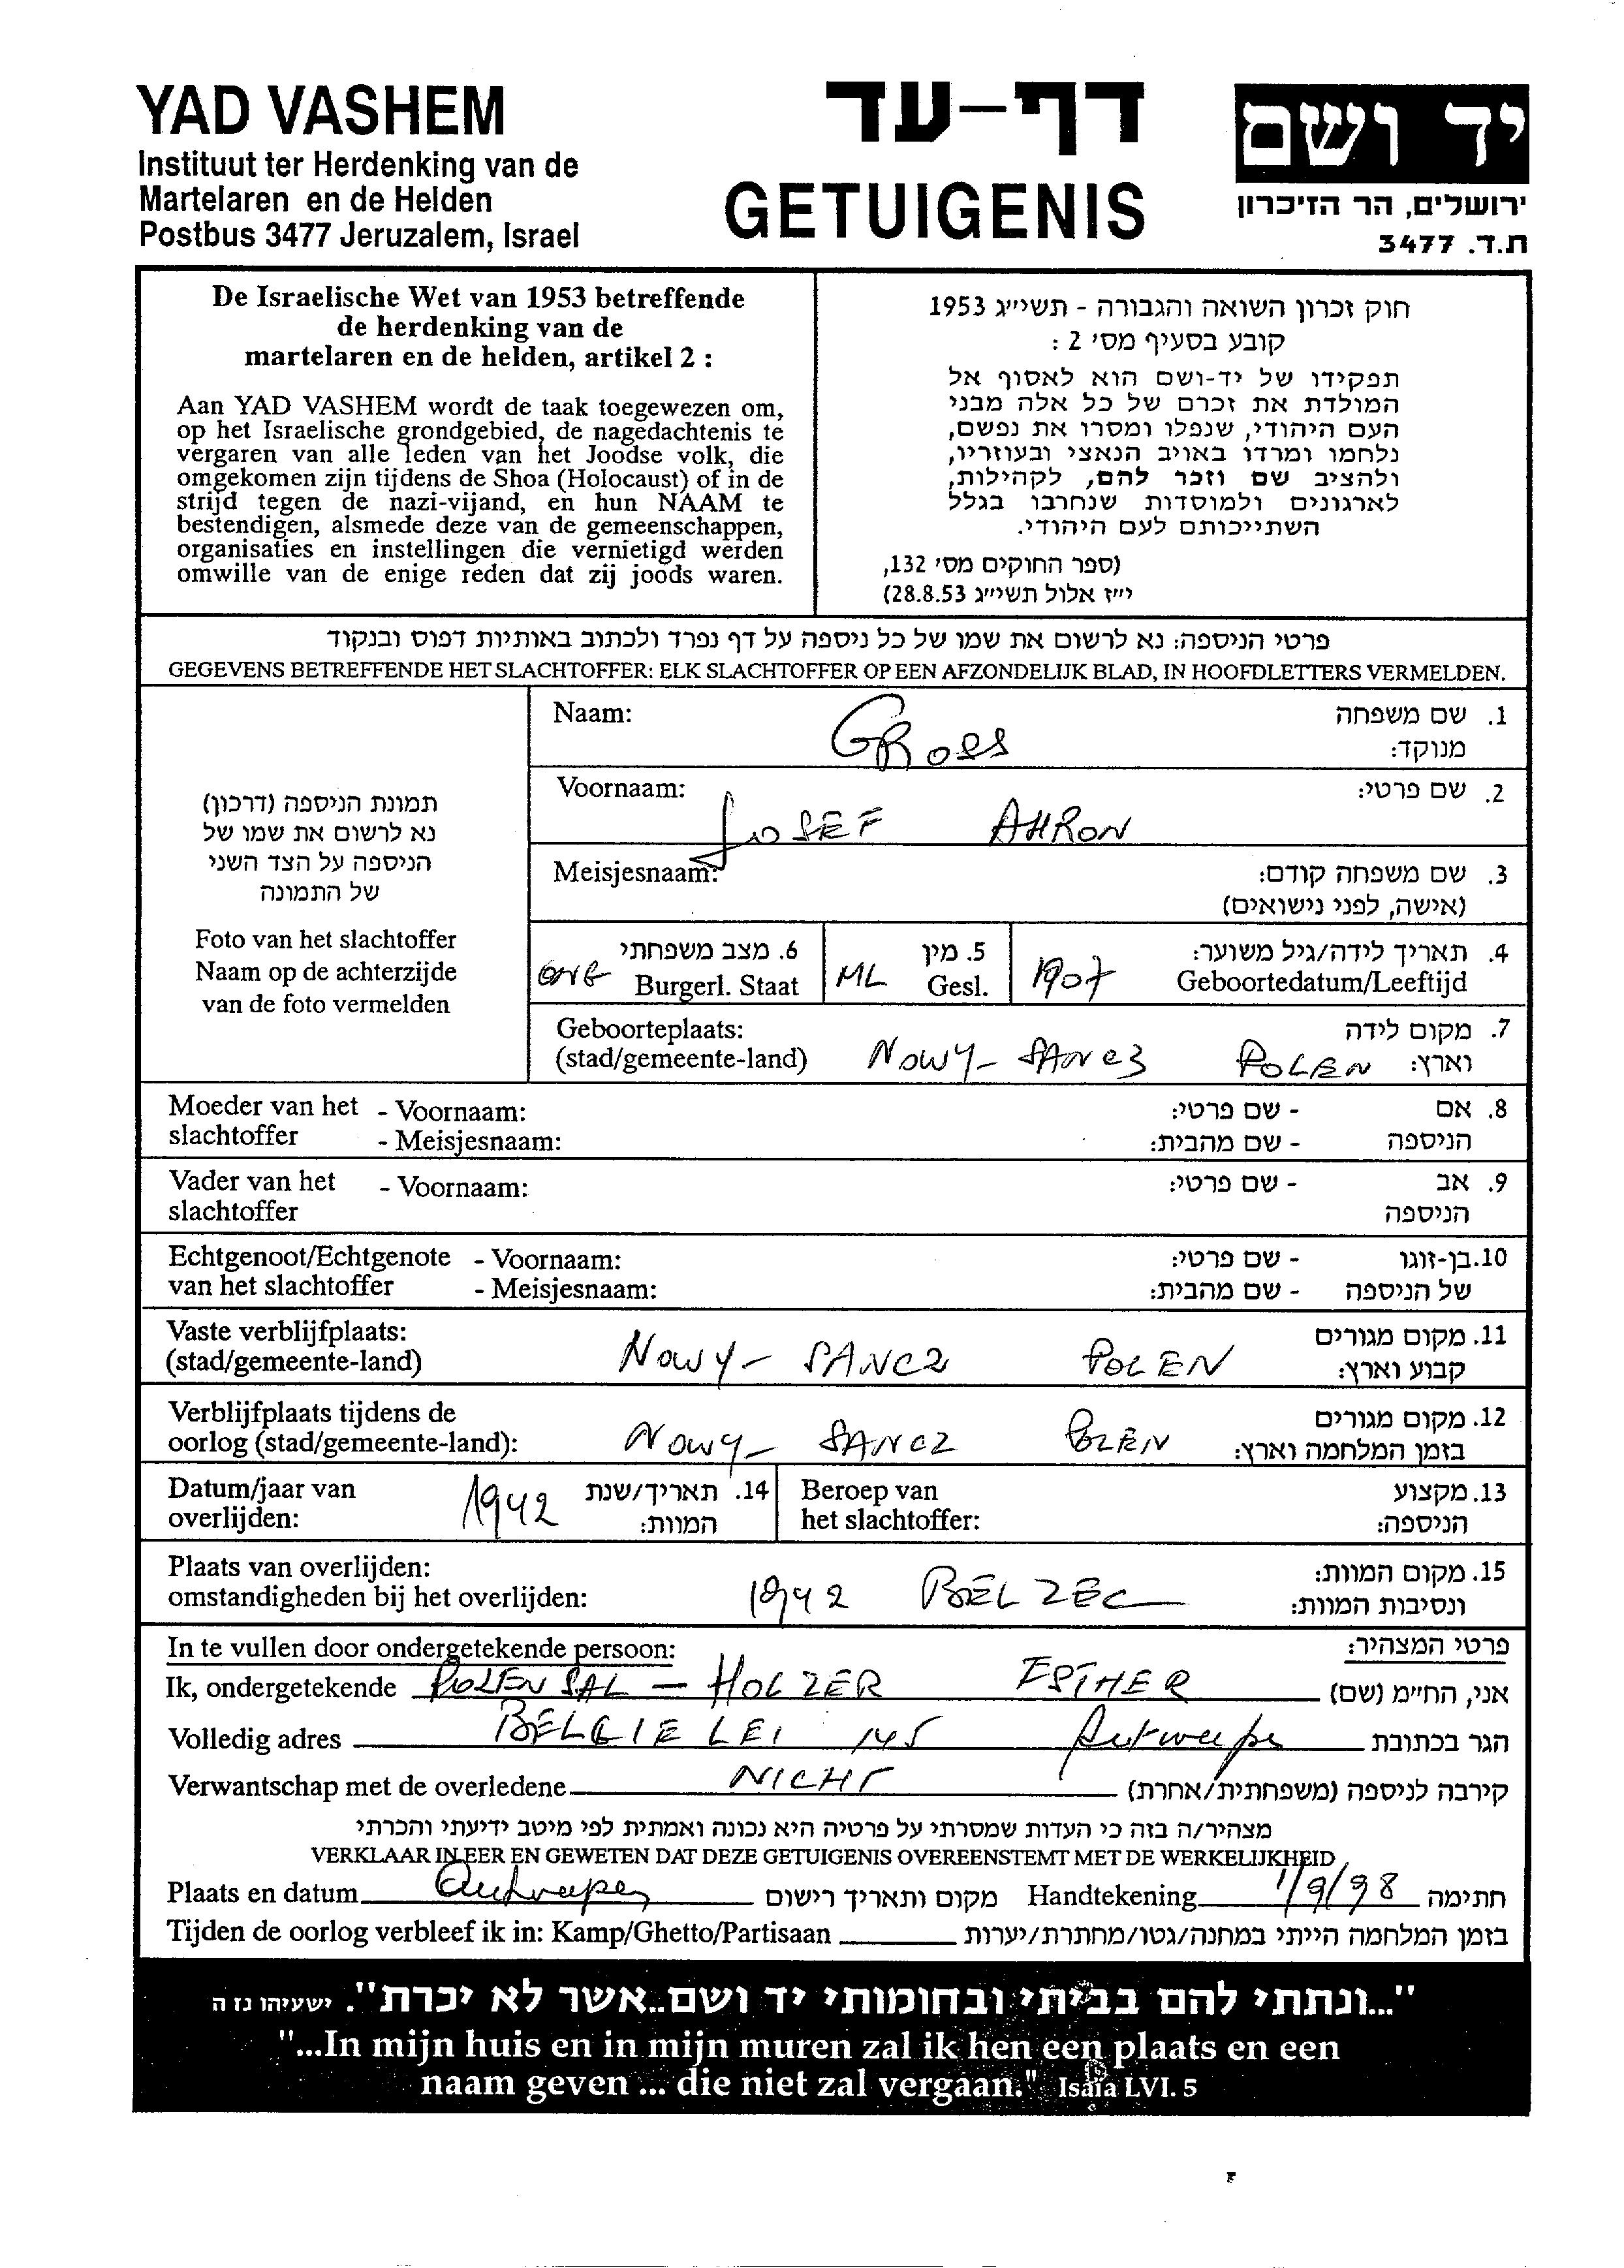 YAD VASHEM
Instituut ter Herdenking van de
Martelaren en de Helden
Postbus 3477 Jeruzalem, Israel
דף-עד
GETUIGENIS
יד ושם
ירושלים, הר הזיכרון
ת.ד. 3477
De Israelische Wet van 1953 betreffende
de herdenking van de
martelaren en de helden, artikel 2 :
Aan YAD VASHEM wordt de taak toegewezen om,
op het Israelische grondgebied, de nagedachtenis te
vergaren van alle leden van het Joodse volk, die
omgekomen zijn tijdens de Shoa (Holocaust) of in de
strijd tegen de nazi-vijand, en hun NAAM te
bestendigen, alsmede deze van de gemeenschappen,
organisaties en instellingen die vernietigd werden
omwille van de enige reden dat zij joods waren.
חוק זכרון השואה והגבורה - תשי״ג 1953
קובע בסעיף מס׳ 2 :
תפקידו של יד-ושם הוא לאסוף אל
המולדת את זכרם של כל אלה מבני
העם היהודי, שנפלו ומסרו את נפשם,
נלחמו ומרדו באויב הנאצי ובעוזריו,
ולהציב שם וזכר להם, לקהילות,
לארגונים ולמוסדות שנחרבו בגלל
השתייכותם לעם היהודי.
(ספר החוקים מס׳ 132,
י״ז אלול תשי״ג 28.8.53)
פרטי הניספה: נא לרשום את שמו של כל ניספה על דף נפרד ולכתוב באותיות דפוס ובנקוד
GEGEVENS BETREFFENDE HET SLACHTOFFER: ELK SLACHTOFFER OP EEN AFZONDELIJK BLAD, IN HOOFDLETTERS VERMELDEN.
תמונת הניספה (דרכון)
נא לרשום את שמו של
הניספה על הצד השני
של התמונה
Foto van het slachtoffer
Naam op de achterzijde
van de foto vermelden
Naam: GROSS 1. שם משפחה
מנוקד:
Voornaam: JOSEF AHRON 2. שם פרטי:
Meisjesnaam: 3. שם משפחה קודם:
(אישה, לפני נישואים)
6. מצב משפחתי 5. מין 4. תאריך לידה/גיל משוער:
ONG Burgerl. Staat ML Gesl. 1907 Geboortedatum/Leeftijd
Geboorteplaats: 7. מקום לידה
(stad/gemeente-land) NOWY- SANCZ POLEN וארץ:
Moeder van het - Voornaam: - שם פרטי: 8. אם
slachtoffer - Meisjesnaam: - שם מהבית: הניספה
Vader van het - Voornaam: - שם פרטי: 9. אב
slachtoffer הניספה
Echtgenoot/Echtgenote - Voornaam: - שם פרטי: 10. בן-זוגו
van het slachtoffer - Meisjesnaam: - שם מהבית: של הניספה
Vaste verblijfplaats: 11. מקום מגורים
(stad/gemeente-land) NOWY- SANCZ POLEN קבוע וארץ:
Verblijfplaats tijdens de 12. מקום מגורים
oorlog (stad/gemeente-land): NOWY- SANCZ POLEN בזמן המלחמה וארץ:
Datum/jaar van 1942 14. תאריך/שנת Beroep van 13. מקצוע
overlijden: המוות: het slachtoffer: הניספה:
Plaats van overlijden: 15. מקום המוות:
omstandigheden bij het overlijden: 1942 BELZEC ונסיבות המוות:
In te vullen door ondergetekende persoon: פרטי המצהיר:
Ik, ondergetekende ROZENSAL - HOLZER ESTHER אני, הח״מ (שם)
Volledig adres BELGIELEI 145 Antwerpen הגר בכתובת
Verwantschap met de overledene NICHT קירבה לניספה (משפחתית/אחרת)
מצהיר/ה בזה כי העדות שמסרתי על פרטיה היא נכונה ואמתית לפי מיטב ידיעתי והכרתי
VERKLAAR IN EER EN GEWETEN DAT DEZE GETUIGENIS OVEREENSTEMT MET DE WERKELIJKHEID
Plaats en datum Antwerpen מקום ותאריך רישום Handtekening 1/9/98 חתימה
Tijden de oorlog verbleef ik in: Kamp/Ghetto/Partisaan בזמן המלחמה הייתי במחנה/גטו/מחתרת/יערות
"...ונתתי להם בביתי ובחומותי יד ושם..אשר לא יכרת". ישעיהו נז ה
"...In mijn huis en in mijn muren zal ik hen een plaats en een
naam geven ... die niet zal vergaan." Isaïa LVI. 5